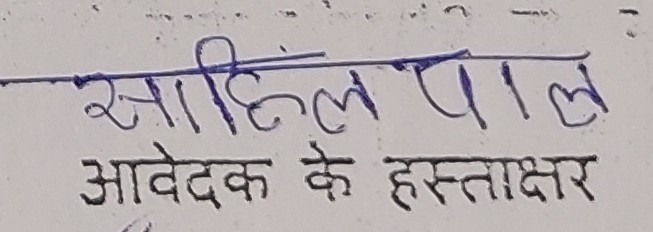 साहिल पाल
आवेदक के हस्ताक्षर